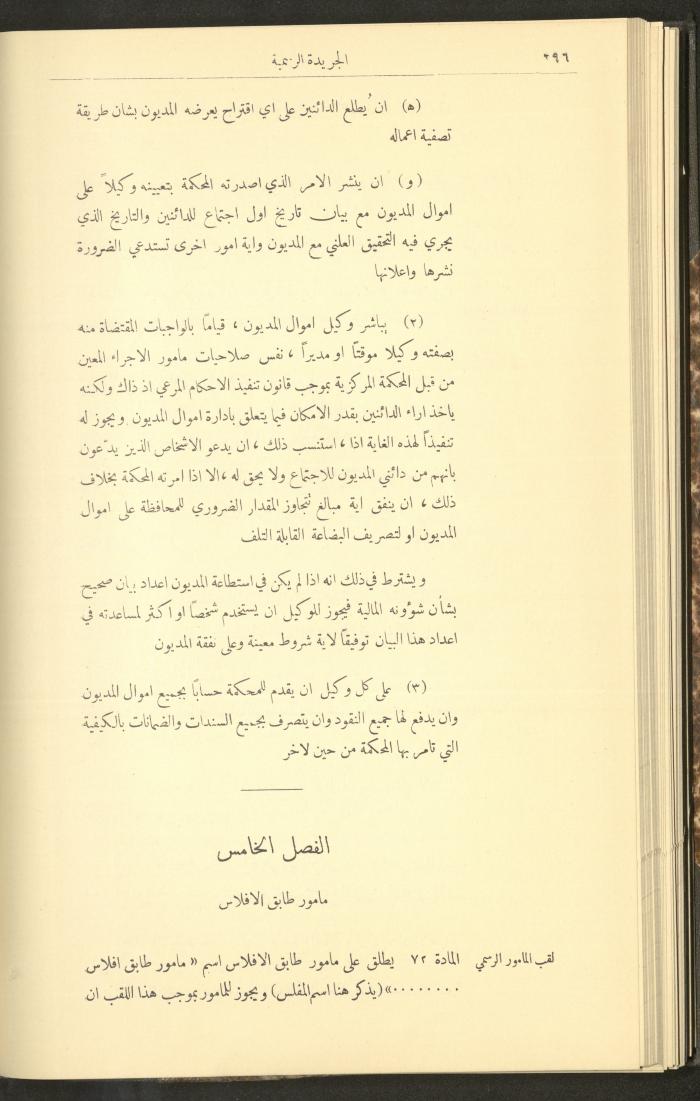 ٢٩٦
الجريدة الرسمية
(ه) ان يُطلع الدائنين على اي اقتراح يعرضه المديون بشان طريقة
تصفية اعماله
(و) ان ينشر الامر الذي اصدرته المحكمة بتعيينه وكيلاً على
اموال المديون مع بيان تاريخ اول اجتماع للدائنين والتاريخ الذي
يجري فيه التحقيق العلني مع المديون واية امور اخرى تستدعي الضرورة
نشرها واعلانها
(٢) يباشر وكيل اموال المديون ، قيامًا بالواجبات المقتضاة منه
بصفته وكيلا موقتًا او مديرًا ، نفس صلاحيات مامور الاجراء المعين
من قبل المحكمة المركزية بموجب قانون تنفيذ الاحكام المرعي اذ ذاك ولكنه
ياخذ اراء الدائنين بقدر الامكان فيما يتعلق بادارة اموال المديون ويجوز له
تنفيذًا لهذه الغاية اذا ، استنسب ذلك ، ان يدعو الاشخاص الذين يدّعون
بانهم من دائني المديون للاجتماع ولا يحق له ، الا اذا امرته المحكمة بخلاف
ذلك ، ان ينفق اية مبالغ تتجاوز المقدار الضروري للمحافظة على اموال
المديون او لتصريف البضاعة القابلة التلف
ويشترط في ذلك انه اذا لم يكن في استطاعة المديون اعداد بيان صحيح
بشأن شؤونه المالية فيجوز للوكيل ان يستخدم شخصًا او اكثر لمساعدته في
اعداد هذا البيان توفيقًا لاية شروط معينة وعلى نفقة المديون
(٣) على كل وكيل ان يقدم للمحكمة حسابًا بجميع اموال المديون
وان يدفع لها جميع النقود وان يتصرف بجميع السندات والضمانات بالكيفية
التي تامر بها المحكمة من حين لاخر
الفصل الخامس
مامور طابق الافلاس
لقب المامور الرسمي المادة ٧٢ يطلق على مامور طابق الافلاس اسم « مامور طابق افلاس
........» (يذكر هنا اسم المفلس) ويجوز للمامور بموجب هذا اللقب ان